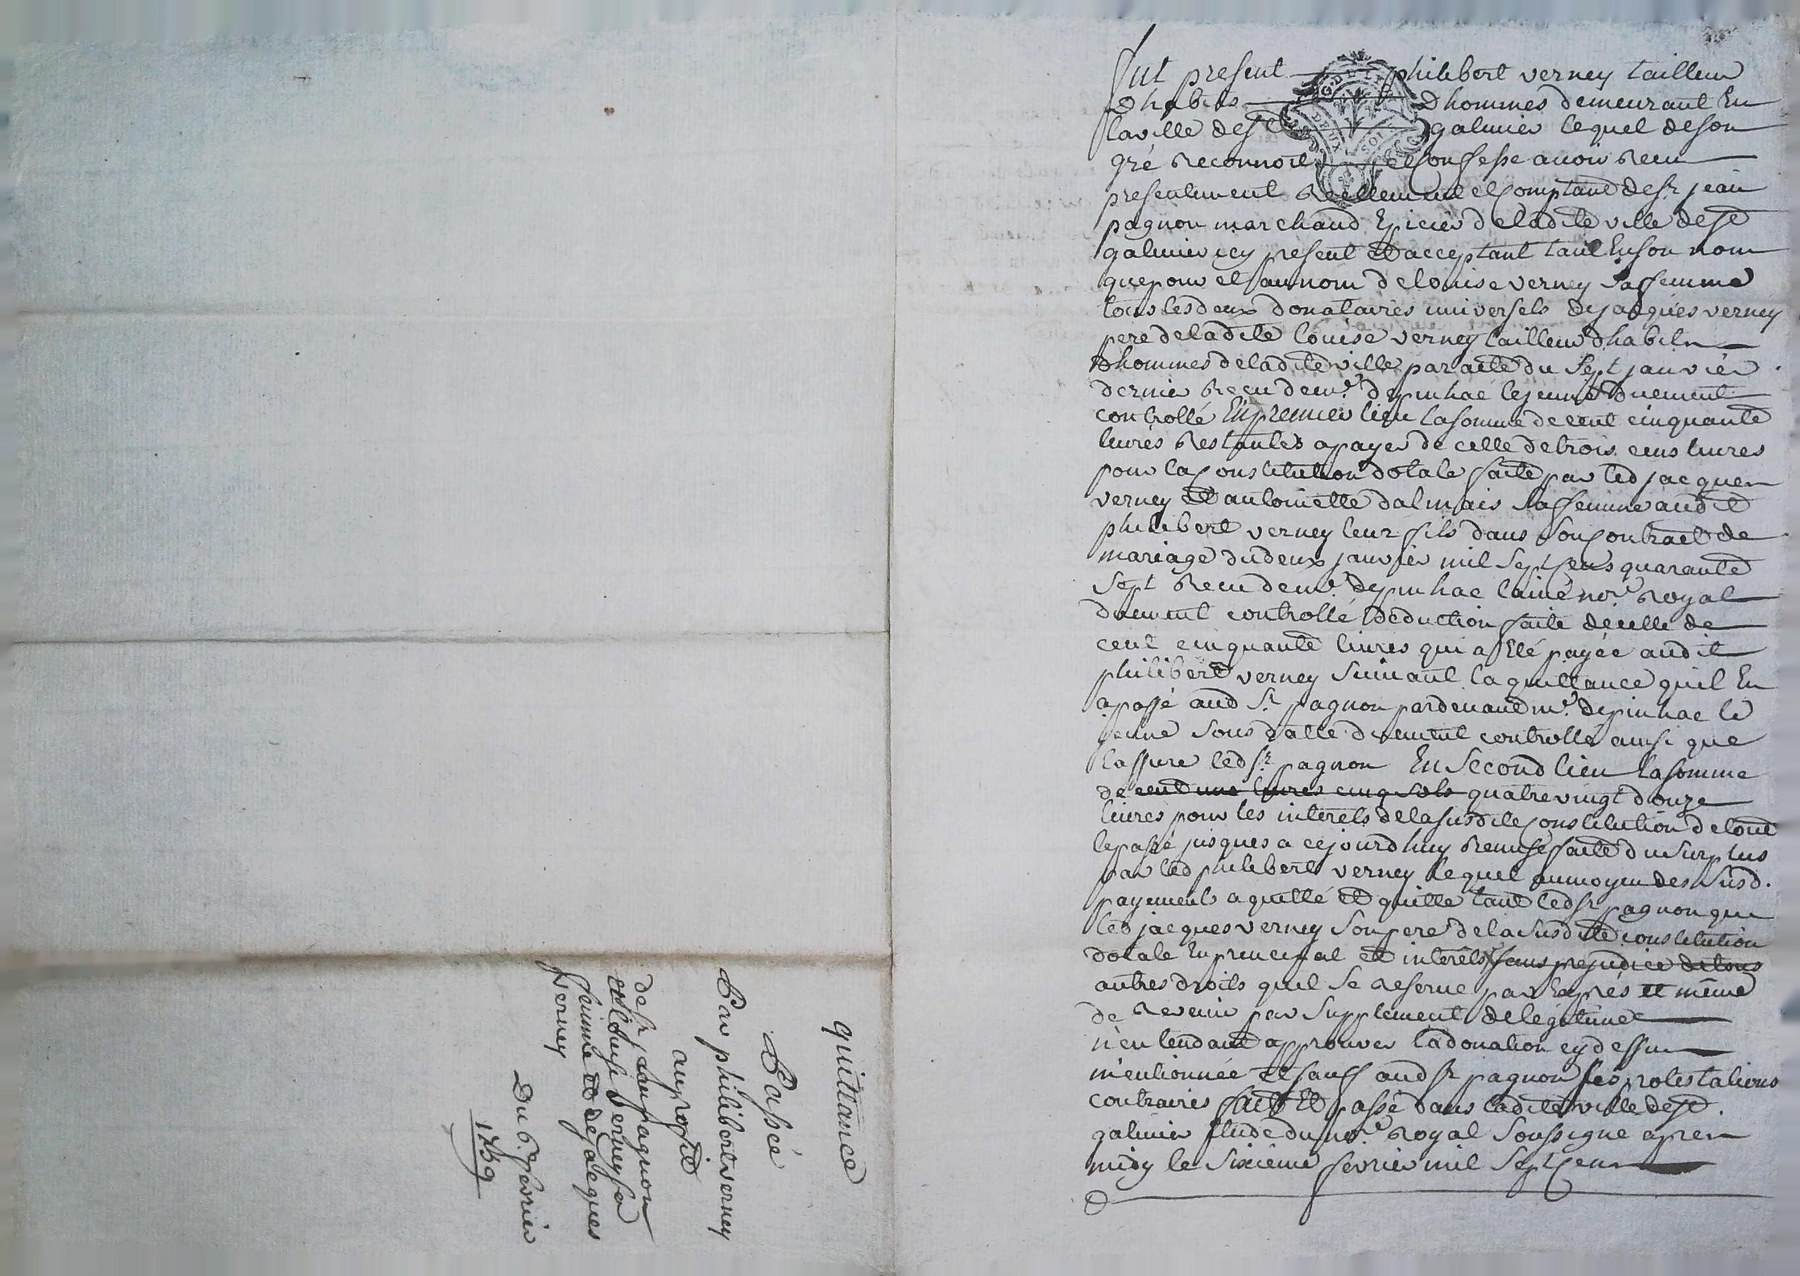 fut present philibert verney tailleur
Dhabits Dhommes demeurant En
la ville de st galmier lequel deson
gré Reconnoit et Confesse avoir Receu
presentement Réellement et Comptant de sr jean
pagnon marchand Epicier de ladite ville de st
galmier icy present et acceptant tant En son nom
que pour et au nom de louise verney sa femme
tous les deux donataires universels de jacques verney
pere de ladite louise verney tailleur dhabits
dhommes de ladite ville par acte du sept janvier
dernier Receu de me. depinhac le jeune Duement
controllé En premier lieu la somme de cent cinquante
livres Restantes a payer de celle de trois cens livres
pour la Constitution dotale faite par led jacques
verney et antoinette dalmais sa femme audit
philibert verney leur fils dans son Contract de
mariage du deux janvier mil sept Cens quarante
sept Receu de me. depinhac lainé nore. Royal
duement controllé Deduction faite de celle de
cent cinquante livres qui a Eté payée audit
philibert verney suivant la quittance quil En
a passé aud sr pagnon pardevant me. depinhac le
jeune sous datte duement controllé ainsi que
lassure led sr. pagnon En second lieu la somme
de cent une livres cinq sols quatre vingt douze
livres pour les interets de la susdite Constitution de tout
le passé jusques a cejourdhuy Remise faite du surplus
par led philibert verney lequel au moyen des susd.
payements a quitté et quitte tant led sr pagnon que
led jacques verney son pere de la susdite constitution
dotale En principal et interêts sans prejudice de tous
autres droits quil se Reserve par Exprés et même
de Revenir par supplement de legitime
n'entendant approuver la donation cy dessus
mentionnée et sauf aud sr pagnon ses protestations
contraires fait et passé dans ladite ville de st.
galmier Etude du nore. Royal soussigne apres
midy le sixieme fevrier mil sept Cens
quittance
Passée
Par philibert verney
au profit
de sr jean pagnon
et louise Verney sa
femme et de jacques
verney
Du 6e. fevrier
1759